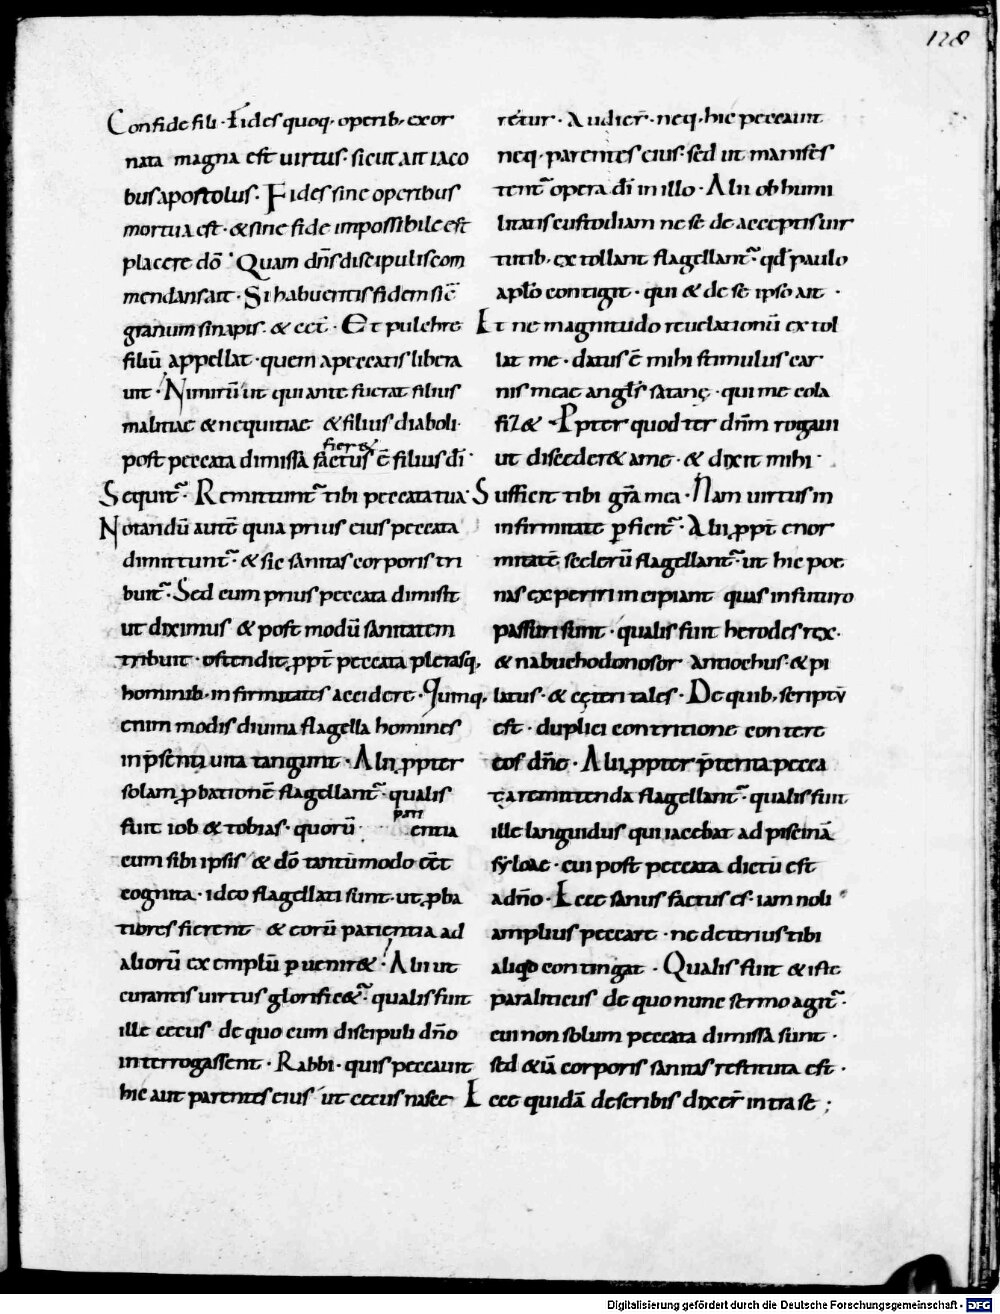 128
Confide fili · Fides quoq; operib; exor
nata magna est uirtus · sicut ait iaco
bus apostolus · Fides sine operibus
mortua est · & sine fide impossibile est
placere dō · Quam dn̄s discipulis com
mendans ait · Si habueritis fidem sic̄
granum sinapis · & cet̄ · Et pulchre
filiū appellat · quem a peccatis libera
uit · Nimirū ut qui ante fuerat filius
malitiae & nequitiae & filius diaboli ·
fier&
post peccata dimissa factus ē filius dī ·
Sequit̄ · Remittunt̄ tibi peccata tua ·
Notandū autē quia prius eius peccata
dimittunt̄ · & sic sanitas corporis tri
buit̄ · Sed cum prius peccata dimisit
ut diximus & post modū sanitatem
tribuit · ostendit ꝓpt̄ peccata plerasq;
hominib; infirmitates accidere · Quinq;
enim modis diuina flagella homines
in p̄senti uita tangunt · Alii ꝓpter
solam ꝓbationē flagellant̄ · qualis
pati
fuit iob & tobias · quorū entia
cum sibi ipsis & dō tantummodo eēt
cognita · ideo flagellati sunt · ut ꝓba
tiores fierent & eorū patientia ad
aliorū exemplū ꝑuenir& · Alii ut
curantis uirtus glorific&̄ · qualis fuit
ille cecus de quo cum discipuli dn̄o
interrogassent · Rabbi · quis peccauit
hic aut parentes eius ut cecus nasce
ret̄ur · Audier̄ · neq; hic peccauit
neq; parentes eius · sed ut manifes
tent̄ opera dī in illo · Alii ob humi
litatis custodiam ne se de acceptis uir
tutib; extollant flagellant̄ · qd̄ paulo
aplo contigit · qui & de se ipso ait ·
Et ne magnitudo reuelationū extol
lat me · datus ē mihi stimulus car
nis meae angls̄ satanę · qui me cola
fiz& · Ppter quod ter dn̄m rogaui
ut disceder& a me · & dixit mihi ·
Sufficit tibi gr̄a mea · Nam uirtus in
infirmitate ꝑficit̄ · Alii ꝓpt̄ enor
mitatē scelerū flagellant̄ · ut hic poe
nas experiri incipiant quas in futuro
passuri sunt · qualis fuit herodes rex ·
& nabuchodonosor antiochus · & pi
latus · & cęteri tales · De quib; scriptū
est · duplici contritione contere
eos dn̄e · Alii ꝓpter p̄terita pecca
ta remittenda flagellant̄ · qualis fuit
ille languidus qui iacebat ad piscinā
syloae · cui post peccata dictū est
a dn̄o · Ecce sanus factus es · iam noli
amplius peccare · ne deterius tibi
aliqd contingat · Qualis fuit & iste
paraliticus de quo nunc sermo agit̄ ·
cui non solum peccata dimissa sunt ·
sed &iā corporis sanitas restituta est ·
Ecce quidā de scribis dixer̄ intra se ;
Digitalisierung gefördert durch die Deutsche Forschungsgemeinschaft - DFG